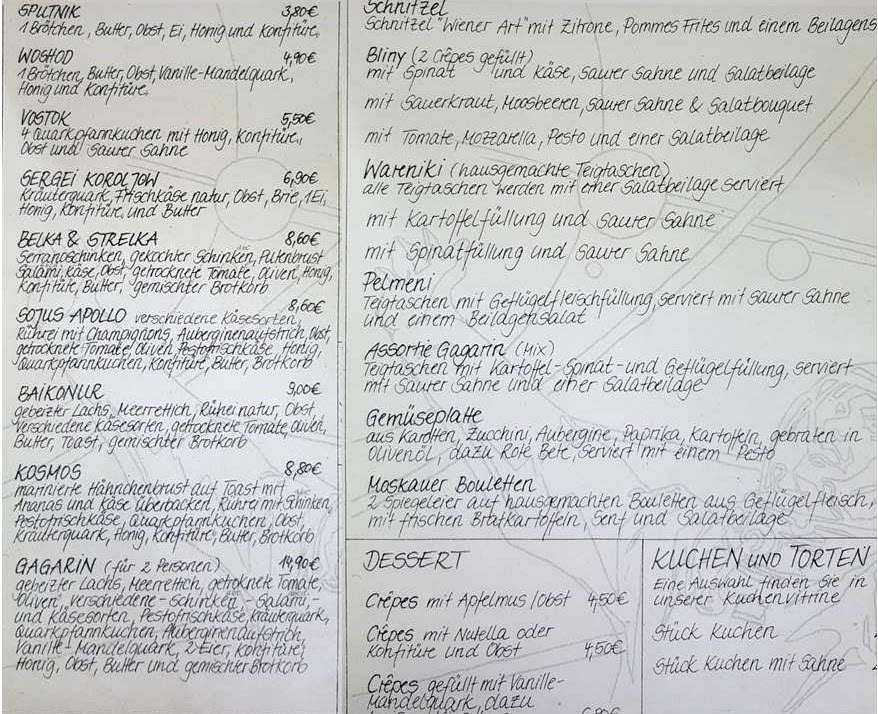 SPUTNIK 3,80€
1 Brötchen, Butter, Obst, Ei, Honig und Konfitüre,
WOSHOD 4,90€
1 Brötchen, Butter, Obst, Vanille-Mandelquark,
Honig und Konfitüre.
VOSTOK 5,50€
4 Quarkpfannkuchen mit Honig, Konfitüre,
Obst und Saurer Sahne
SERGEi KOROLJOW 6,90€
Kräuterquark, Frischkäse natur, Obst, Brie, 1Ei,
Honig, Konfitüre und Butter
BELKA & STRELKA 8,60€
Serranoschinken, gekochter Schinken, Putenbrust
Salami, Käse, Obst, getrocknete Tomate, Oliven, Honig,
Konfitüre, Butter, gemischter Brotkorb
SOJUS-APOLLO verschiedene Käsesorten, 8,60€
Rührei mit Champignons, Auberginenaufstrich, Obst,
getrocknete Tomate, Oliven, Pestofrischkäse, Honig,
Quarkpfannkuchen, Konfitüre, Butter, Brotkorb
BAIKONUR 9,00€
gebeizter Lachs, Meerrettich, Rührei natur, Obst,
verschiedene Käsesorten, getrocknete Tomate, Oliven,
Butter, Toast, gemischter Brotkorb
KOSMOS 8,80€
marinierte Hähnchenbrust auf Toast mit
Ananas und Käse überbacken, Rührei mit Schinken,
Pestofrischkäse, Quarkpfannkuchen, Obst,
Kräuterquark, Honig, Konfitüre, Butter, Brotkorb
GAGARIN (für 2 Personen) 14,90€
gebeizter Lachs, Meerrettich, getroknete Tomate,
Oliven, verschiedene-Schinken-, Salami,-
und Käsesorten, Pestofrischkäse, Kräuterquark,
Quarkpfannkuchen, Auberginenaufstrich,
Vanille-Mandelquark, 2 Eier, Konfitüre,
Honig, Obst, Butter und gemischter Brotkorb
Schnitzel
Schnitzel "Wiener Art" mit Zitrone, Pommes Frites und einem Beilagens
Bliny (2 Crêpes gefüllt)
mit Spinat und Käse, saurer Sahne und Salatbeilage
mit Sauerkraut, Moosbeeren, saurer Sahne & Salatbouquet
mit Tomate, Mozzarella, Pesto und einer Salatbeilage
Wareniki (hausgemachte Teigtaschen)
alle Teigtaschen werden mit einer Salatbeilage serviert
mit Kartoffelfüllung und saurer Sahne
mit Spinatfüllung und saurer Sahne
Pelmeni
Teigtaschen mit Geflügelfleischfüllung, serviert mit saurer Sahne
und einem Beilagensalat
Assortie Gagarin (Mix)
Teigtaschen mit Kartoffel-Spinat-und Geflügelfüllung, serviert
mit Saurer Sahne und einer Salatbeilage
Gemüseplatte
aus Karotten, Zucchini, Aubergine, Paprika, Kartoffeln, gebraten in
Olivenöl, dazu Rote Bete, serviert mit einem Pesto
Moskauer Bouletten
2 Spiegeleier auf hausgemachten Bouletten aus Geflügelfleisch,
mit frischen Bratkartoffeln, Senf und Salatbeilage
DESSERT
Crêpes mit Apfelmus/Obst 4,50€
Crêpes mit Nutella oder
Konfitüre und Obst 4,50€
Crêpes gefüllt mit Vanille-
Mandelquark, dazu
KUCHEN UND TORTEN
Eine Auswahl finden Sie in
unserer Kuchenvitrine
Stück Kuchen
Stück Kuchen mit Sahne